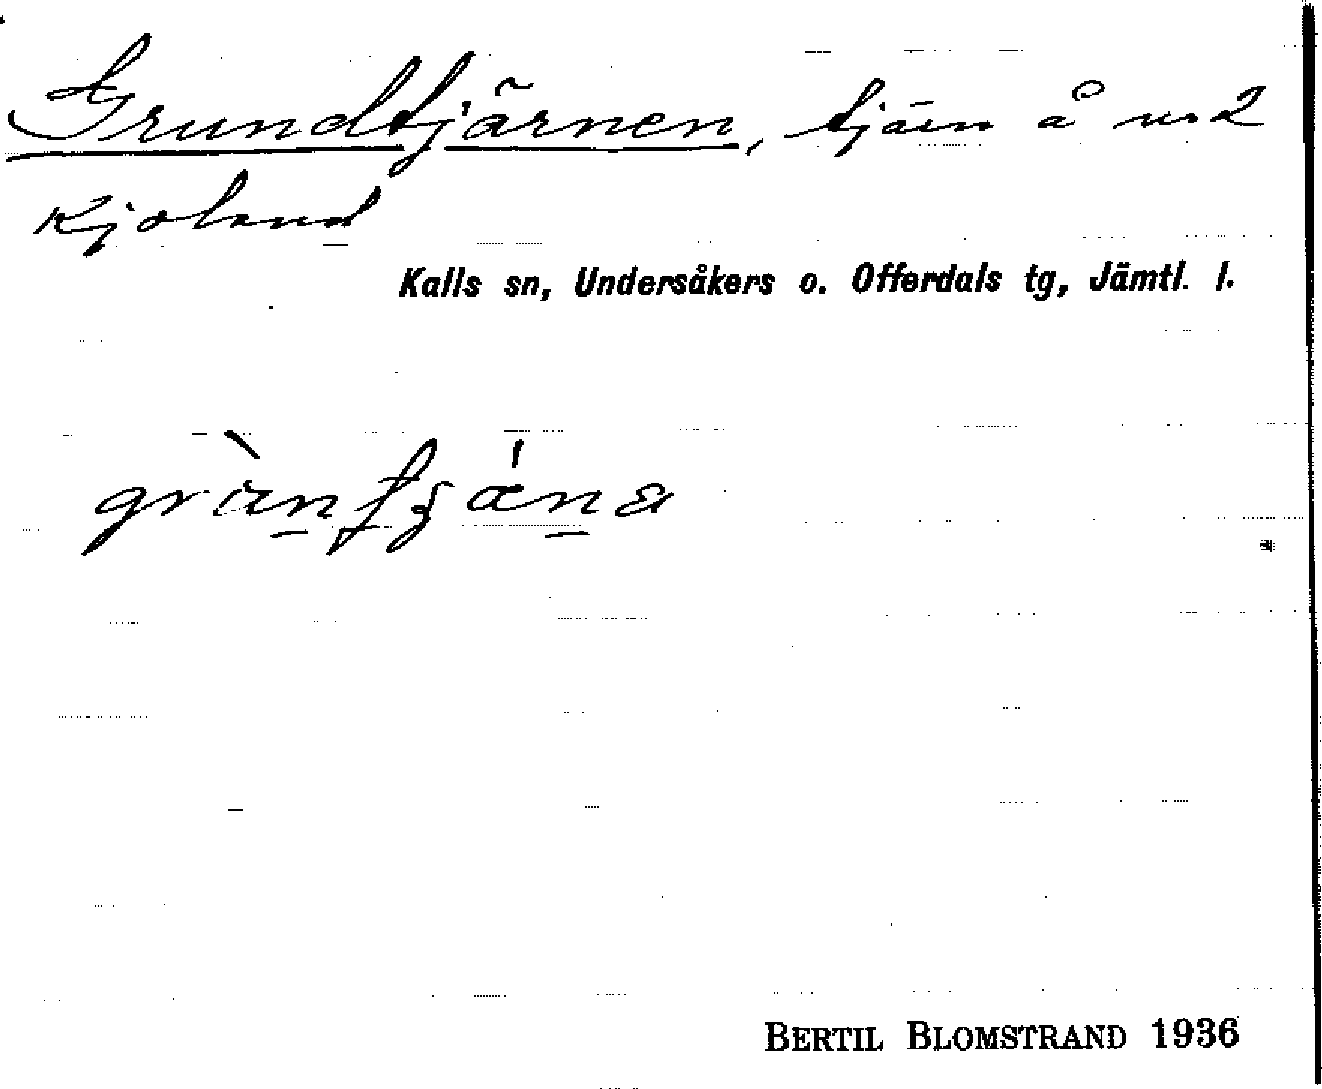 Grundtjärnen, tjärn å nr 2
Kjoland
Kalls sn, Undersåkers o. Offerdals tg, Jämtl. l.
BERTIL BLOMSTRAND 1936